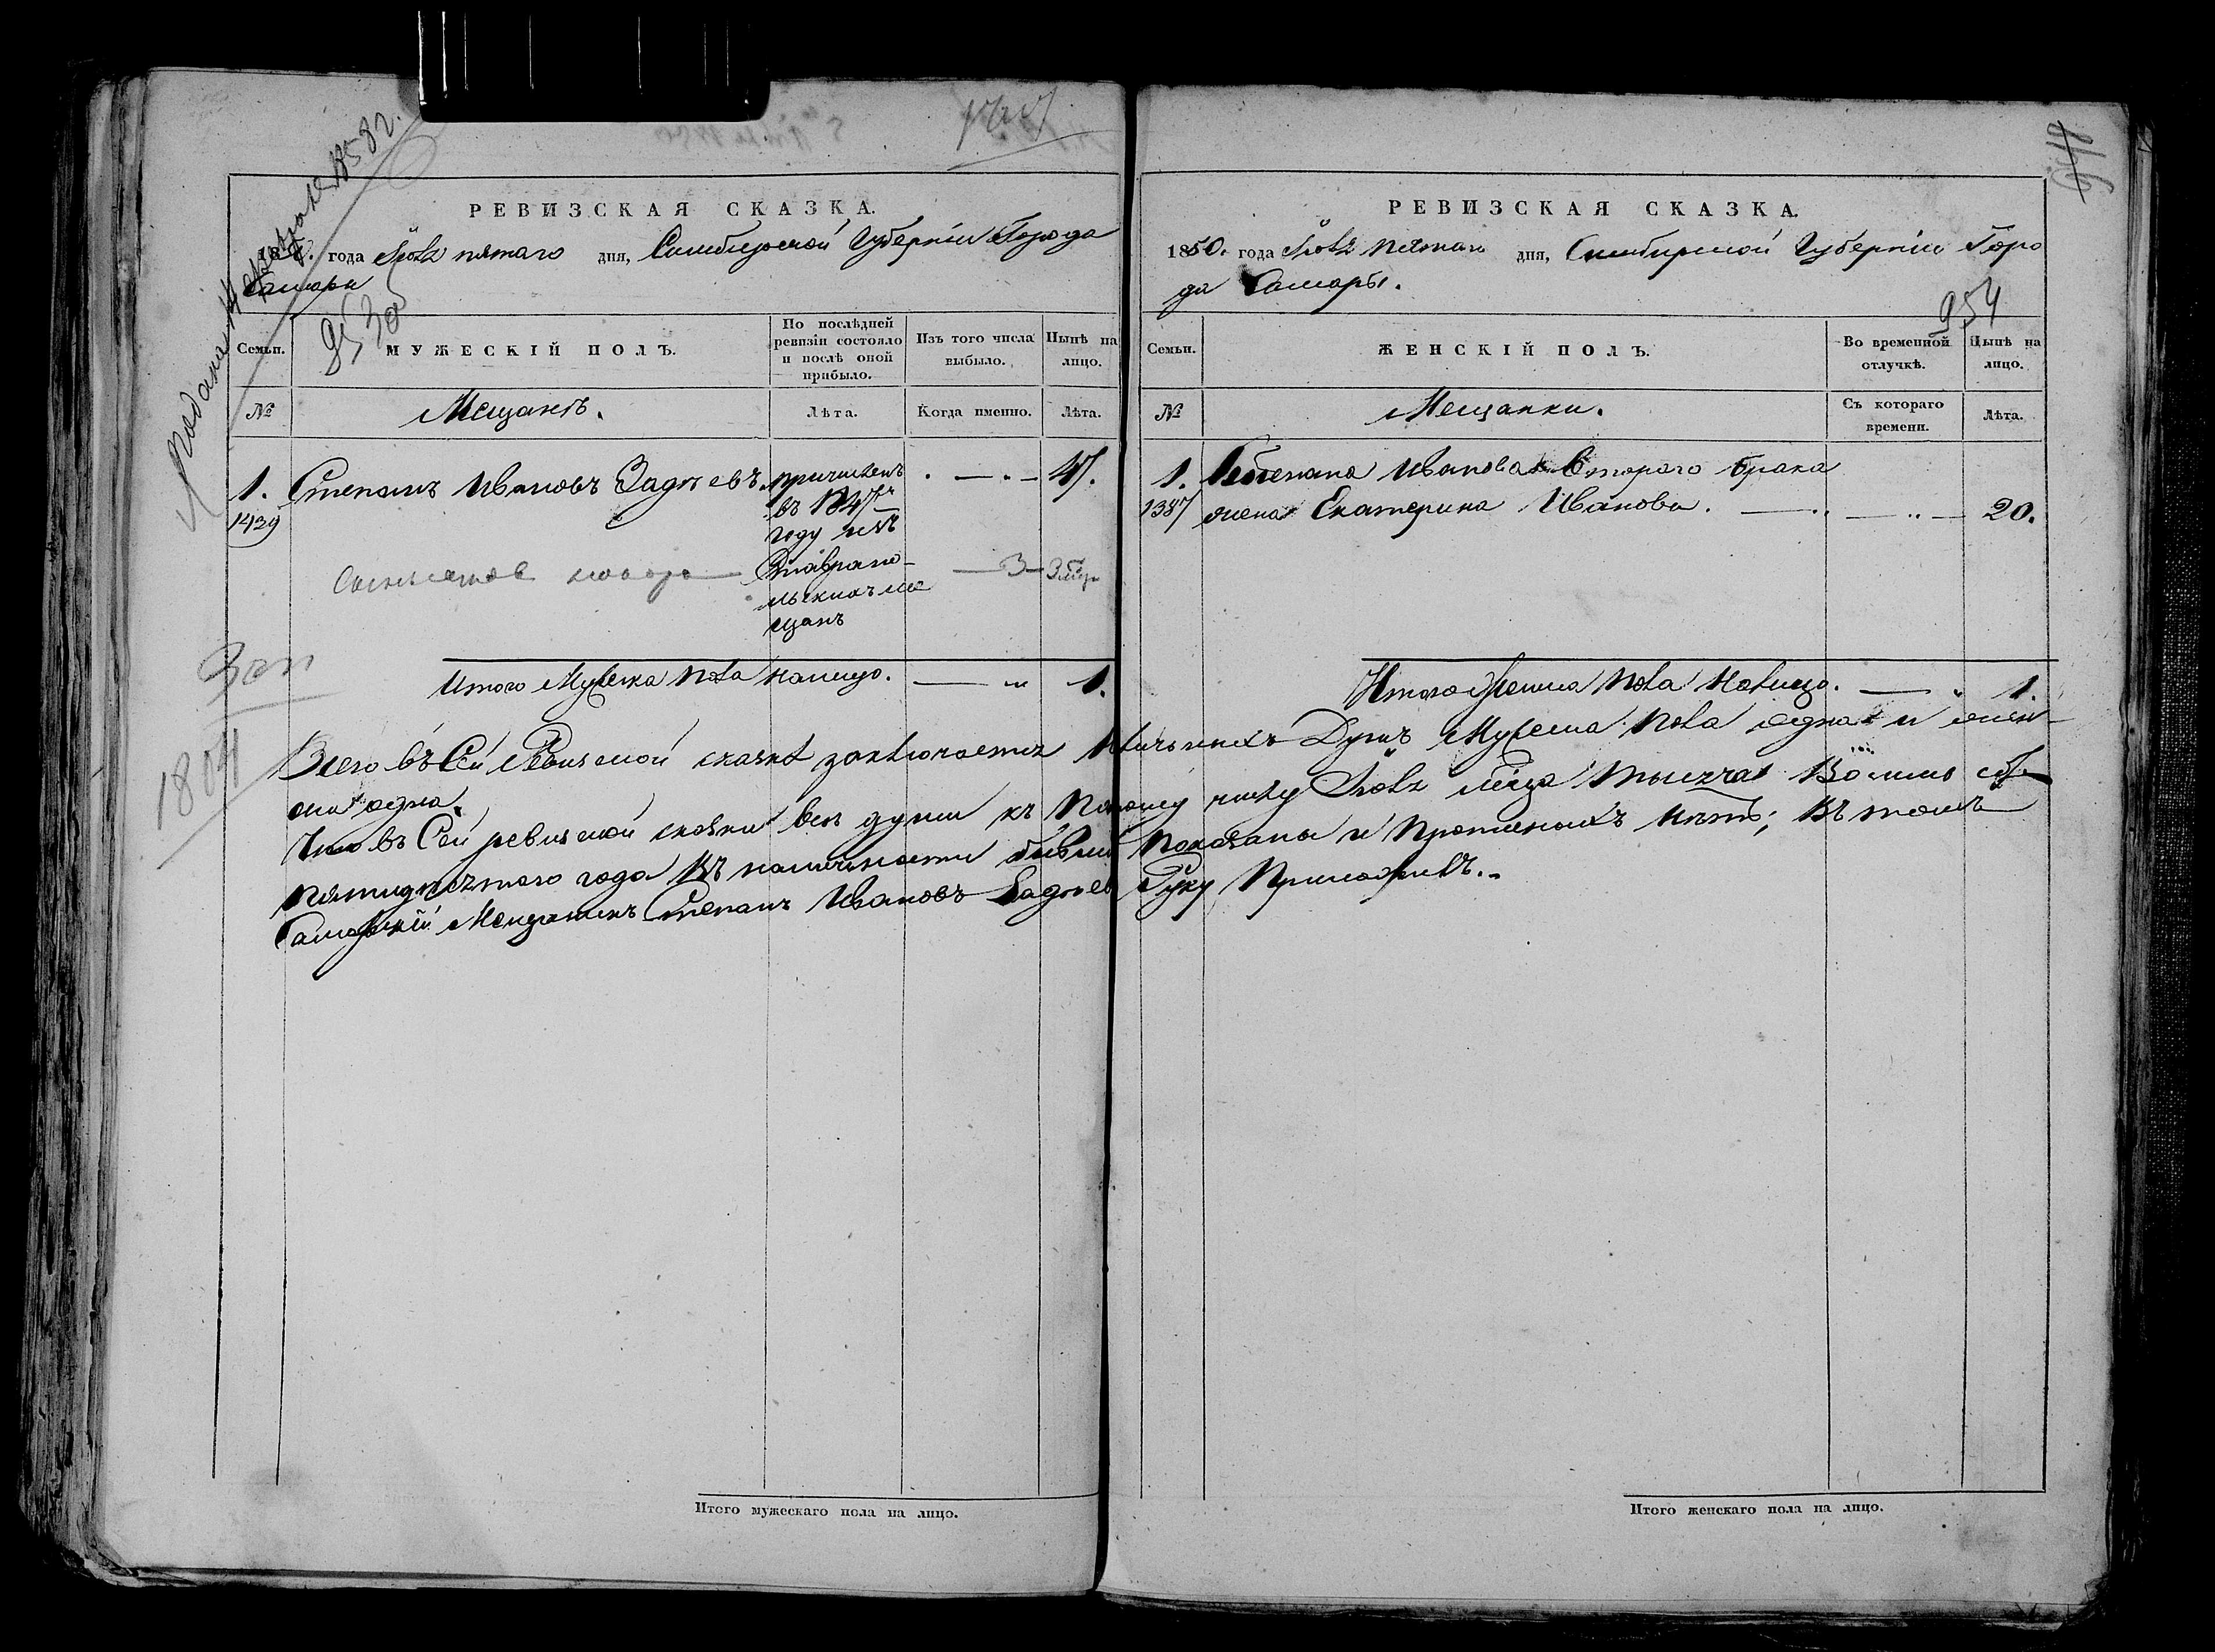 РЕВИЗСКАЯ СКАЗКА.
года Іюля пятаго дня, Симбирской Губерніи Города
Самары
953 об
Семьи.
МУЖЕСКІЙ ПОЛЪ.
По послѣдней ревизіи состояло и послѣ оной прибыло.
Изъ того числа выбыло.
Нынѣ на лицо.
№
Мещанѣ.
Лѣта.
Когда именно.
Лѣта.
1. Степанъ Ивановъ Заднѣевъ. причисленъ 47.
1439 въ 1847
году изъ
Ставропо-
льскихъ ме
щанъ
3
Итого Мужеска пола налицо. 1.
1804
РЕВИЗСКАЯ СКАЗКА.
1850. года Іюля пятаго дня, Симбирской Губерніи Горо
да Самары.
954
Семьи.
ЖЕНСКІЙ ПОЛЪ.
Во временной отлучкѣ.
Нынѣ на лицо.
№
Мещанки.
Съ котораго времени.
Лѣта.
1. Степана Иванова втораго брака
1387 жена Екатерина Иванова. 20.
Итого Женска пола налицо. 1.
Всего въ Сей Ревизской сказкѣ заключается наличныхъ Душъ Мужеска пола одна и жен-
ска одна.
Что въ Сей ревизской сказки всѣ души къ числу Іюля тысяча
пятидесятаго года въ наличности бывши показаны и прописныхъ нѣтъ; въ томъ
Самарскій Мещанинъ Степанъ Ивановъ Заднѣев Руку Приложилъ.
Итого мужескаго пола на лицо.
Итого женскаго пола на лицо.